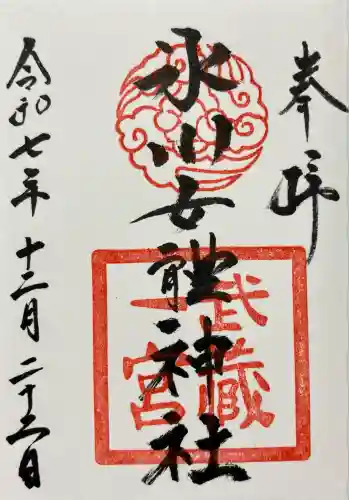 奉拝
氷川女體神社
武蔵
一宮
令和七年十二月二十二日